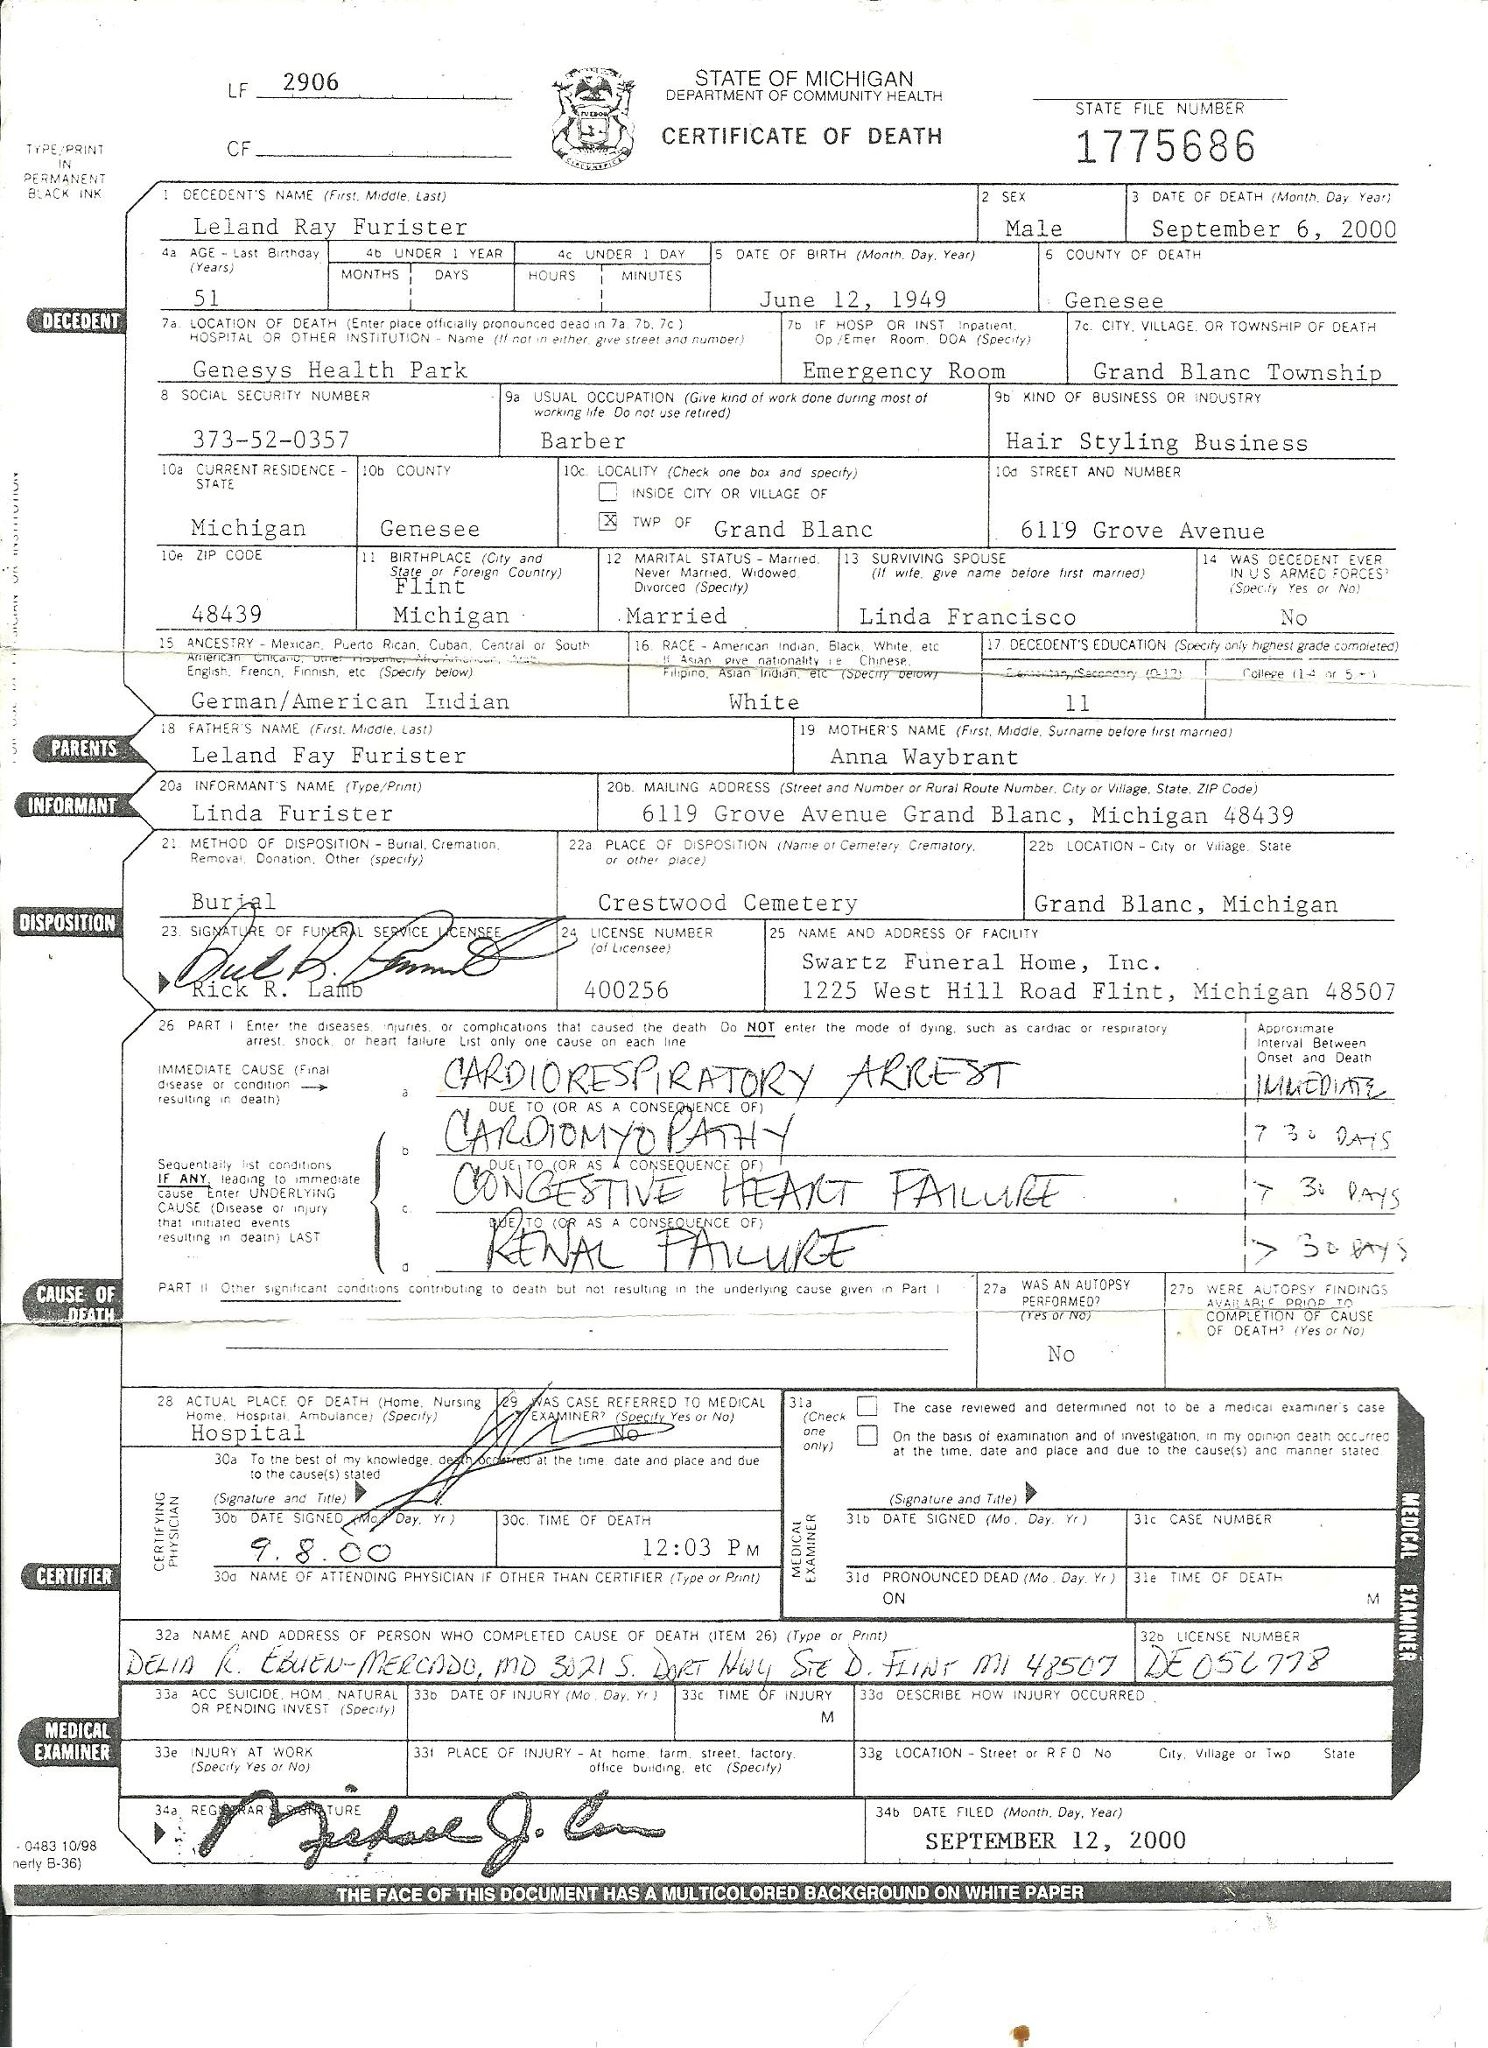 LF 2906
STATE OF MICHIGAN
DEPARTMENT OF COMMUNITY HEALTH
CERTIFICATE OF DEATH
STATE FILE NUMBER
1775686
CF
TYPE/PRINT
IN
PERMANENT
BLACK INK
1 DECEDENT'S NAME (First, Middle, Last)
Leland Ray Furister
2 SEX
Male
3 DATE OF DEATH (Month, Day, Year)
September 6, 2000
4a AGE - Last Birthday
(Years)
51
4b UNDER 1 YEAR
MONTHS DAYS
4c UNDER 1 DAY
HOURS MINUTES
5 DATE OF BIRTH (Month, Day, Year)
June 12, 1949
6 COUNTY OF DEATH
Genesee
DECEDENT
7a. LOCATION OF DEATH (Enter place officially pronounced dead in 7a, 7b, 7c)
HOSPITAL OR OTHER INSTITUTION - Name (If not in either, give street and number)
Genesys Health Park
7b IF HOSP OR INST Inpatient,
Op/Emer Room, DOA (Specify)
Emergency Room
7c. CITY, VILLAGE, OR TOWNSHIP OF DEATH
Grand Blanc Township
8 SOCIAL SECURITY NUMBER
373-52-0357
9a USUAL OCCUPATION (Give kind of work done during most of
working life Do not use retired)
Barber
9b KIND OF BUSINESS OR INDUSTRY
Hair Styling Business
10a CURRENT RESIDENCE -
STATE
Michigan
10b COUNTY
Genesee
10c. LOCALITY (Check one box and specify)
INSIDE CITY OR VILLAGE OF
X TWP OF Grand Blanc
10d STREET AND NUMBER
6119 Grove Avenue
10e ZIP CODE
48439
11 BIRTHPLACE (City and
State or Foreign Country)
Flint
Michigan
12 MARITAL STATUS - Married,
Never Married, Widowed,
Divorced (Specify)
Married
13 SURVIVING SPOUSE
(If wife, give name before first married)
Linda Francisco
14 WAS DECEDENT EVER
IN U S ARMED FORCES?
(Specify Yes or No)
No
15 ANCESTRY - Mexican, Puerto Rican, Cuban, Central or South
American, Chicano, other Hispanic, Afro-American, Arab,
English, French, Finnish, etc (Specify below)
German/American Indian
16. RACE - American Indian, Black, White, etc
If Asian give nationality i e Chinese,
Filipino, Asian Indian, etc (Specify below)
White
17 DECEDENT'S EDUCATION (Specify only highest grade completed)
Elementary/Secondary (0-12) College (1-4 or 5+)
11
PARENTS
18 FATHER'S NAME (First, Middle, Last)
Leland Fay Furister
19 MOTHER'S NAME (First, Middle, Surname before first married)
Anna Waybrant
INFORMANT
20a INFORMANT'S NAME (Type/Print)
Linda Furister
20b. MAILING ADDRESS (Street and Number or Rural Route Number, City or Village, State, ZIP Code)
6119 Grove Avenue Grand Blanc, Michigan 48439
DISPOSITION
21. METHOD OF DISPOSITION - Burial, Cremation,
Removal, Donation, Other (specify)
Burial
22a PLACE OF DISPOSITION (Name of Cemetery, Crematory,
or other place)
Crestwood Cemetery
22b LOCATION - City or Village, State
Grand Blanc, Michigan
23. SIGNATURE OF FUNERAL SERVICE LICENSEE
Rick R. Lamb
24 LICENSE NUMBER
(of Licensee)
400256
25 NAME AND ADDRESS OF FACILITY
Swartz Funeral Home, Inc.
1225 West Hill Road Flint, Michigan 48507
26 PART I Enter the diseases, injuries, or complications that caused the death Do NOT enter the mode of dying, such as cardiac or respiratory
arrest, shock, or heart failure List only one cause on each line
Approximate
Interval Between
Onset and Death
IMMEDIATE CAUSE (Final
disease or condition
resulting in death)
a CARDIORESPIRATORY ARREST IMMEDIATE
DUE TO (OR AS A CONSEQUENCE OF)
b CARDIOMYOPATHY > 30 DAYS
DUE TO (OR AS A CONSEQUENCE OF)
Sequentially list conditions
IF ANY, leading to immediate
cause Enter UNDERLYING
CAUSE (Disease or injury
that initiated events
resulting in death) LAST
c. CONGESTIVE HEART FAILURE > 30 DAYS
DUE TO (OR AS A CONSEQUENCE OF)
d RENAL FAILURE > 30 DAYS
CAUSE OF
DEATH
PART II Other significant conditions contributing to death but not resulting in the underlying cause given in Part I
27a WAS AN AUTOPSY
PERFORMED?
(Yes or No)
No
27b WERE AUTOPSY FINDINGS
AVAILABLE PRIOR TO
COMPLETION OF CAUSE
OF DEATH? (Yes or No)
28 ACTUAL PLACE OF DEATH (Home, Nursing
Home, Hospital, Ambulance) (Specify)
Hospital
29 WAS CASE REFERRED TO MEDICAL
EXAMINER? (Specify Yes or No)
No
30a To the best of my knowledge, death occurred at the time date and place and due
to the cause(s) stated
(Signature and Title)
CERTIFYING
PHYSICIAN
30b DATE SIGNED (Mo, Day, Yr)
9.8.00
30c. TIME OF DEATH
12:03 PM
30d NAME OF ATTENDING PHYSICIAN IF OTHER THAN CERTIFIER (Type or Print)
31a
(Check
one
only)
The case reviewed and determined not to be a medical examiner's case
On the basis of examination and or investigation, in my opinion death occurred
at the time, date and place and due to the cause(s) and manner stated
(Signature and Title)
MEDICAL
EXAMINER
31b DATE SIGNED (Mo, Day, Yr)
31c CASE NUMBER
31d PRONOUNCED DEAD (Mo, Day, Yr)
ON
31e TIME OF DEATH
M
MEDICAL EXAMINER
CERTIFIER
32a NAME AND ADDRESS OF PERSON WHO COMPLETED CAUSE OF DEATH (ITEM 26) (Type or Print)
DELIA R. EBUEN-MERCADO, MD 3021 S. DORT HWY STE D. FLINT MI 48507
32b LICENSE NUMBER
DE056778
MEDICAL
EXAMINER
33a ACC SUICIDE, HOM, NATURAL
OR PENDING INVEST (Specify)
33b DATE OF INJURY (Mo, Day, Yr)
33c TIME OF INJURY
M
33d DESCRIBE HOW INJURY OCCURRED
33e INJURY AT WORK
(Specify Yes or No)
33f PLACE OF INJURY - At home, farm, street, factory,
office building, etc (Specify)
33g LOCATION - Street or R F D No City, Village or Twp State
34a REGISTRAR'S SIGNATURE
Michael J. Carr
34b DATE FILED (Month, Day, Year)
SEPTEMBER 12, 2000
- 0483 10/98
nerly B-36)
THE FACE OF THIS DOCUMENT HAS A MULTICOLORED BACKGROUND ON WHITE PAPER